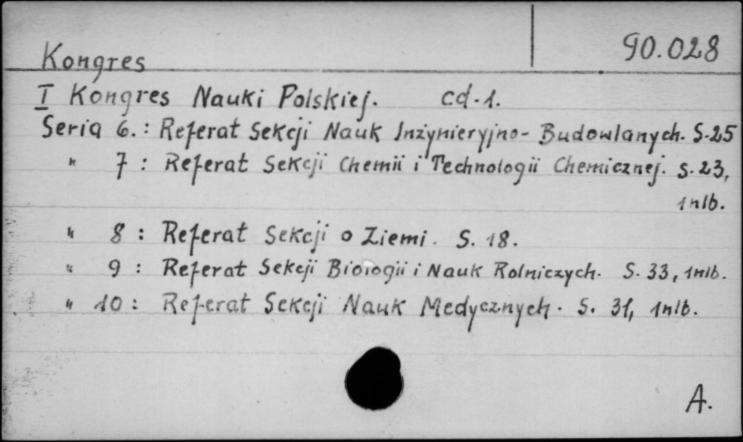 90.028
Kongres
I Kongres Nauki Polskiej. cd.1.
Seria 6.: Referat Sekcji Nauk Inżynieryjno-Budowlanych. S.25
" 7 : Referat Sekcji Chemii i Technologii Chemicznej. s.23,
1nlb.
" 8 : Referat Sekcji o Ziemi. S. 18.
" 9 : Referat Sekcji Biologii i Nauk Rolniczych. S. 33, 1nlb.
" 10 : Referat Sekcji Nauk Medycznych. S. 31, 1nlb.
A.